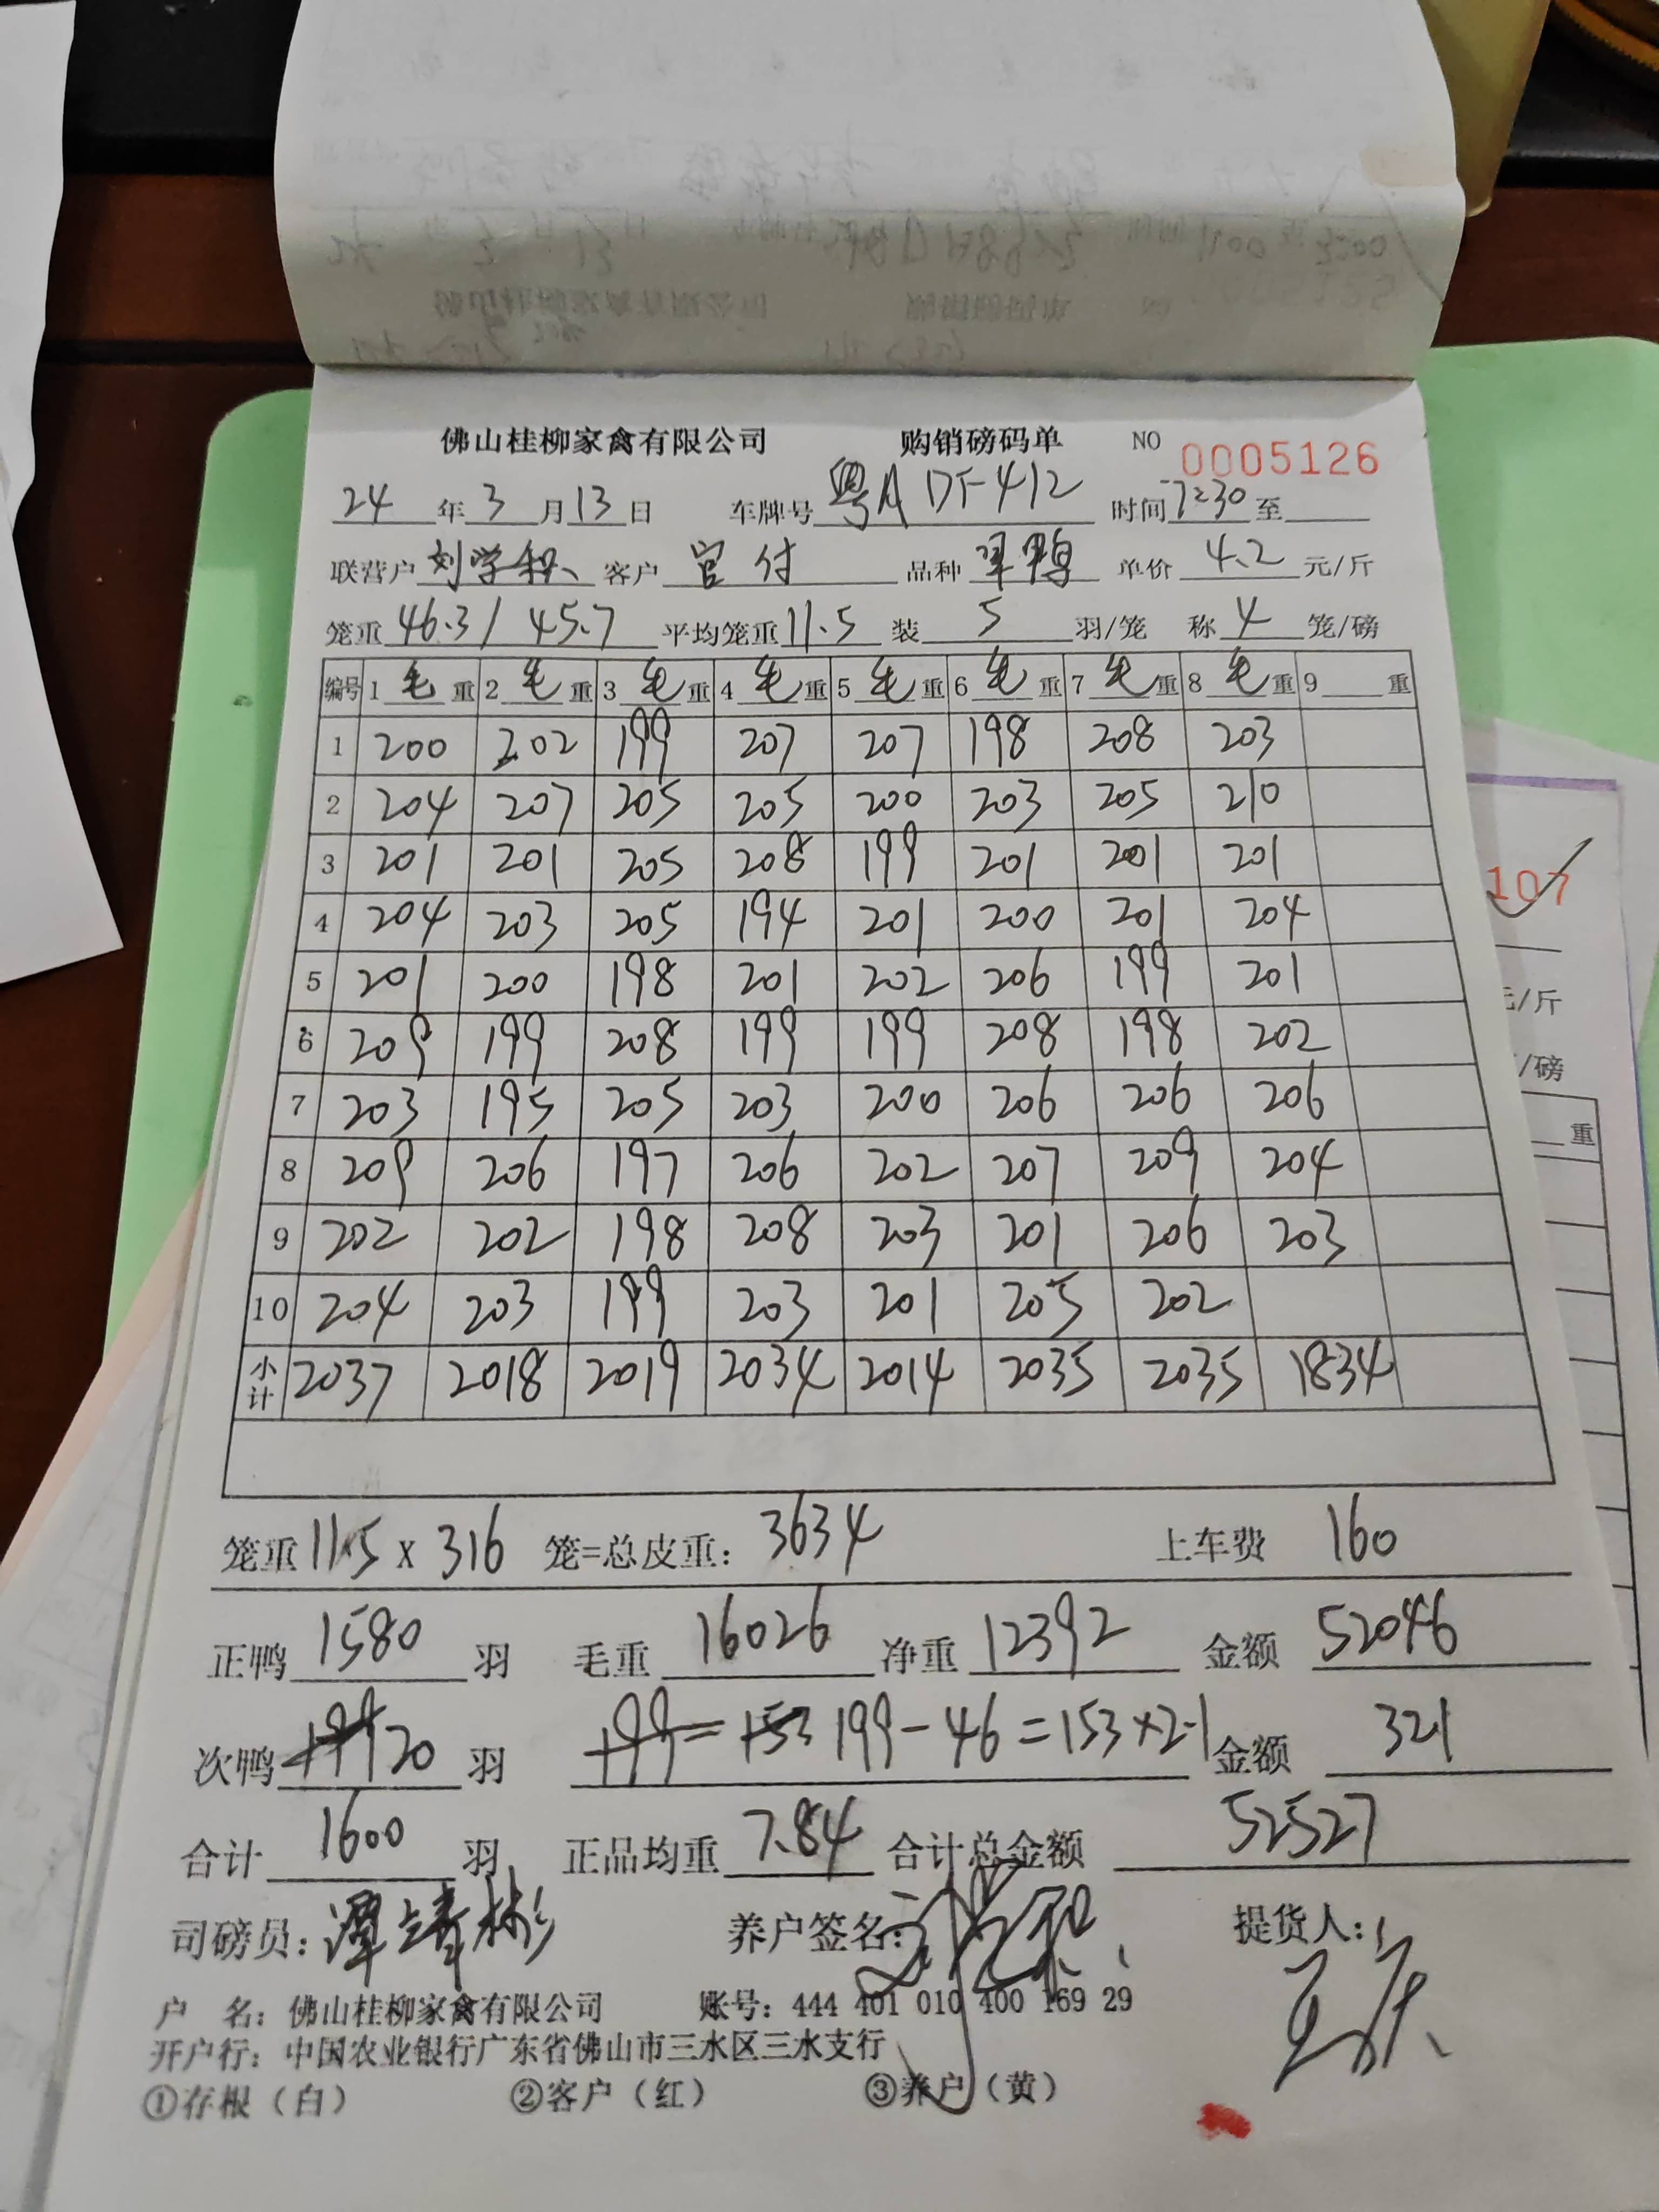 佛山桂柳家禽有限公司 购销磅码单 NO 0005126
24 年 3 月 13 日 车牌号 粤A DF412 时间 7:30 至
联营户 刘学积 客户 官付 品种 单价 4.2 元/斤
笼重 46.3 / 45.7 平均笼重 11.5 装 5 羽/笼 称 4 笼/磅
编号 1 毛 重 2 毛 重 3 毛 重 4 毛 重 5 毛 重 6 毛 重 7 毛 重 8 毛 重 9 重
1 200 202 199 207 207 198 208 203
2 204 207 205 205 200 203 205 210
3 201 201 205 208 199 201 201 201
4 204 203 205 194 201 200 201 204
5 201 200 198 201 202 206 199 201
6 209 199 208 199 199 208 198 202
7 203 195 205 203 200 206 206 206
8 209 206 197 206 202 207 209 204
9 202 202 198 208 203 201 206 203
10 204 203 199 203 201 205 202
小计 2037 2018 2019 2034 2014 2035 2035 1834
笼重 11.5 x 316 笼=总皮重: 3634 上车费 160
正鸭 1580 羽 毛重 16026 净重 12392 金额 52046
次鸭 20 羽 199-46=153×2.1 金额 321
合计 1600 羽 正品均重 7.84 合计总金额 52527
司磅员: 谭靖彬 养户签名: 提货人:
户 名: 佛山桂柳家禽有限公司 账号: 444 401 010 400 169 29
开户行: 中国农业银行广东省佛山市三水区三水支行
①存根（白） ②客户（红） ③养户（黄）
107
元/斤
/磅
重